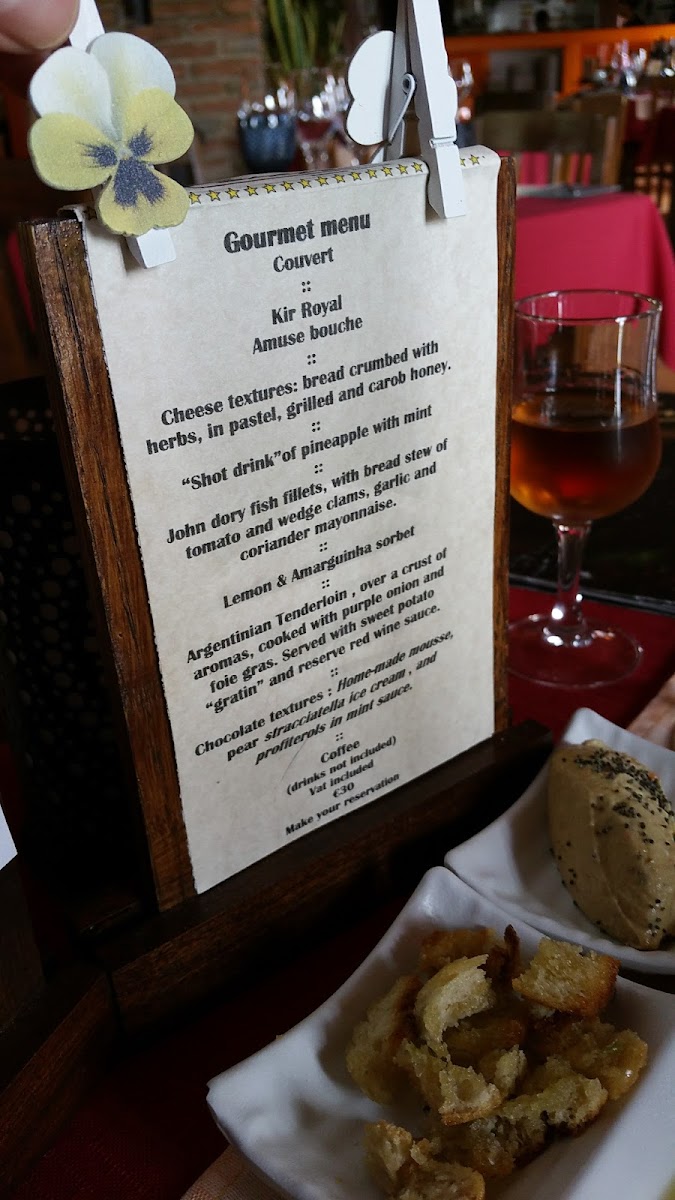 Gourmet menu
Couvert
::
Kir Royal
Amuse bouche
::
Cheese textures: bread crumbed with
herbs, in pastel, grilled and carob honey.
::
“Shot drink”of pineapple with mint
::
John dory fish fillets, with bread stew of
tomato and wedge clams, garlic and
coriander mayonnaise.
::
Lemon & Amarguinha sorbet
::
Argentinian Tenderloin , over a crust of
aromas, cooked with purple onion and
foie gras. Served with sweet potato
“gratin” and reserve red wine sauce.
::
Chocolate textures : Home-made mousse,
pear stracciatella ice cream , and
profiterols in mint sauce.
::
Coffee
(drinks not included)
Vat included
€30
Make your reservation